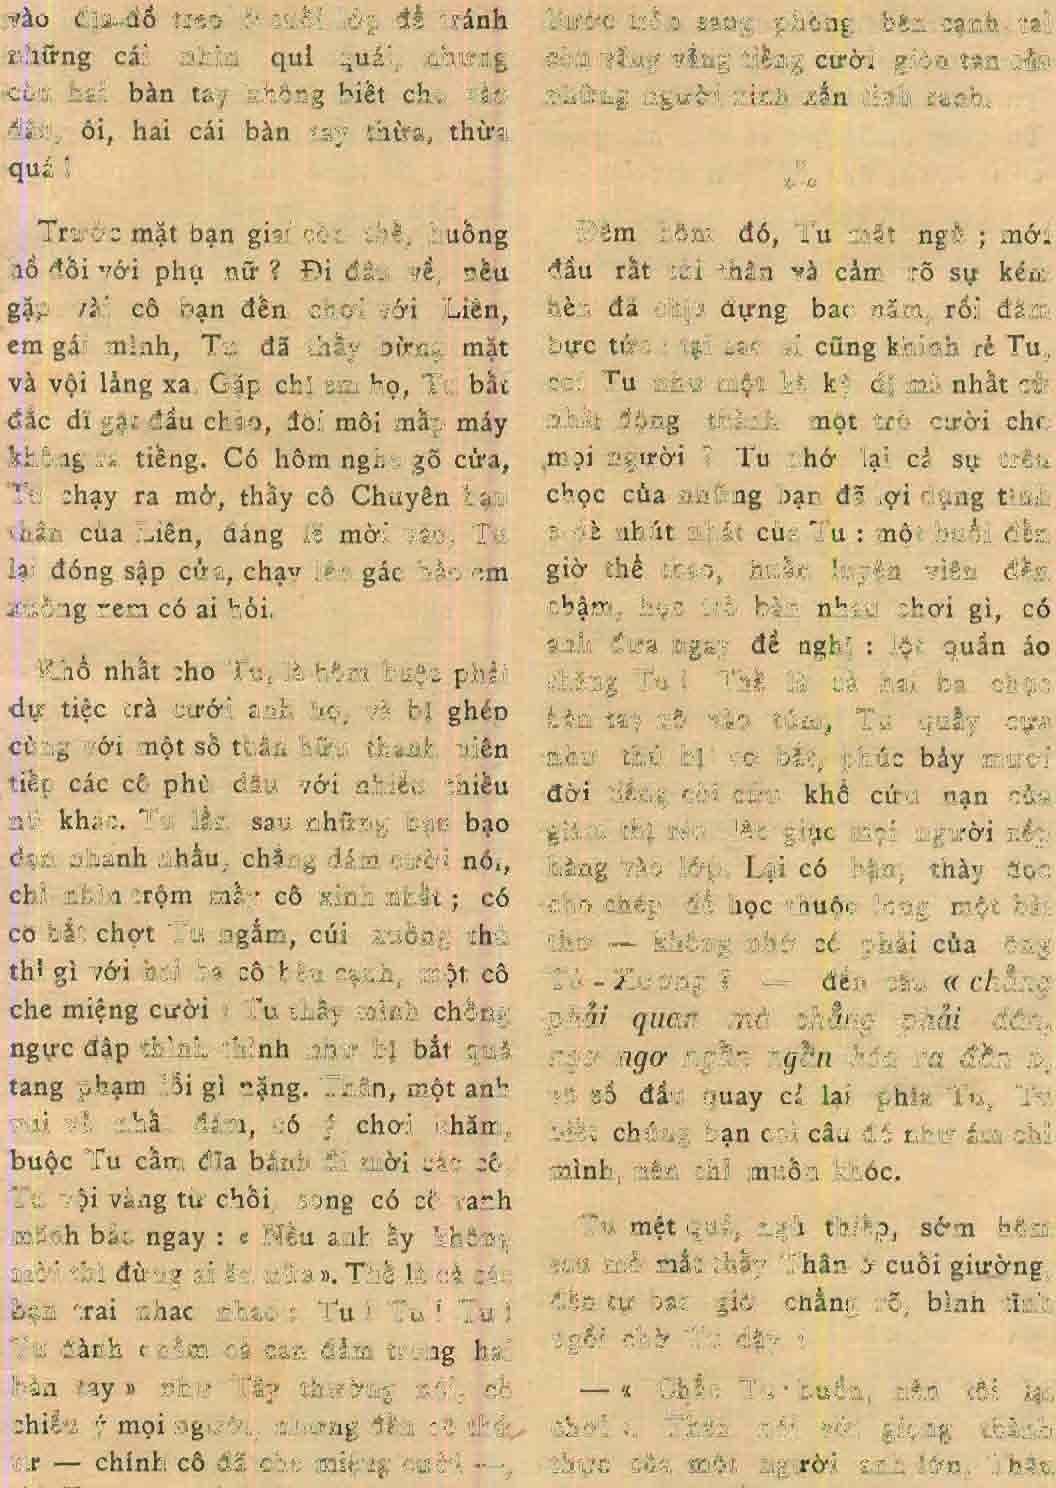 vào địa đồ treo ở cuối lớp để tránh
những cái nhìn quỉ quái, nhưng
còn hai bàn tay không biết cho vào
đâu, ôi, hai cái bàn tay thừa, thừa
quá !
Trước mặt bạn giai còn thế, huống
hồ đối với phụ nữ ? Đi đâu về, nếu
gặp vài cô bạn đến chơi với Liên,
em gái mình, Tu đã thấy bừng mặt
và vội lảng xa. Gặp chị em họ, Tu bất
đắc dĩ gật đầu chào, đôi môi mấp máy
không ra tiếng. Có hôm nghe gõ cửa,
Tu chạy ra mở, thấy cô Chuyên bạn
thân của Liên, đáng lẽ mời vào, Tu
lại đóng sập cửa, chạy lên gác bảo em
xuống xem có ai hỏi.
Khổ nhất cho Tu, là hôm buộc phải
dự tiệc trà cưới anh họ, và bị ghép
cùng với một số tuấn hữu thanh niên
tiếp các cô phù dâu với nhiều thiếu
nữ khác. Tu lẩn sau những bạn bạo
dạn nhanh nhẩu, chẳng dám cười nói,
chỉ nhìn trộm mấy cô xinh nhất ; có
cô bắt chợt Tu ngắm, cúi xuống thủ
thỉ gì với hai ba cô bên cạnh, một cô
che miệng cười : Tu thấy mình chống
ngực đập thình thình như bị bắt quả
tang phạm lỗi gì nặng. Thân, một anh
vui vẻ nhất đám, có ý chơi khăm,
buộc Tu cầm đĩa bánh đi mời các cô.
Tu vội vàng từ chối, song có cô ranh
mãnh bảo ngay : « Nếu anh ấy không
mời thì đừng ai ăn nữa ». Thế là cả các
bạn trai nhao nhao : Tu ! Tu ! Tu !
Tu đành « cầm cả can đảm trong hai
bàn tay » như Tây thường nói, để
chiều ý mọi người, nhưng đến cô thứ
tư — chính cô đã che miệng cười —,
bước trốn sang phòng bên cạnh tai
còn văng vẳng tiếng cười giòn tan của
những người xinh xắn tinh ranh.
Đêm hôm đó, Tu mất ngủ ; mới
đầu rất tủi thân và cảm rõ sự kém
hèn đã chịu đựng bao năm, rồi đâm
bực tức : tại sao ai cũng khinh rẻ Tu,
coi Tu như một kẻ kỳ dị mà nhất cử
nhất động thành một trò cười cho
mọi người ? Tu nhớ lại cả sự trêu
chọc của những bạn đã lợi dụng tính
e dè nhút nhát của Tu : một buổi đến
giờ thể thao, huấn luyện viên đến
chậm, học trò bàn nhau chơi gì, có
anh đưa ngay đề nghị : lột quần áo
thằng Tu ! Thế là cả hai ba chục
bàn tay xô vào túm, Tu quẫy cựa
như thú bị vơ bắt, phúc bảy mươi
đời tiếng còi cứu khổ cứu nạn của
giám thị réo lên giục mọi người xếp
hàng vào lớp. Lại có bận, thày đọc
cho chép để học thuộc lòng một bài
thơ — không nhớ có phải của ông
Tú - Xương ? — đến câu « chẳng
phải quan mà chẳng phải dân,
ngơ ngơ ngẩn ngẩn hóa ra đần »,
số đầu quay cả lại phía Tu, Tu
biết chúng bạn coi câu đó như ám chỉ
mình, nên chỉ muốn khóc.
Tu mệt quá, ngủ thiếp, sớm hôm
sau mở mắt thấy Thân ở cuối giường,
đến tự bao giờ chẳng rõ, bình tĩnh
ngồi chờ Tu dậy :
— « Chắc Tu buồn, nên tôi lại
chơi ». Thân nói với giọng thành
thực của một người anh lớn. Thân